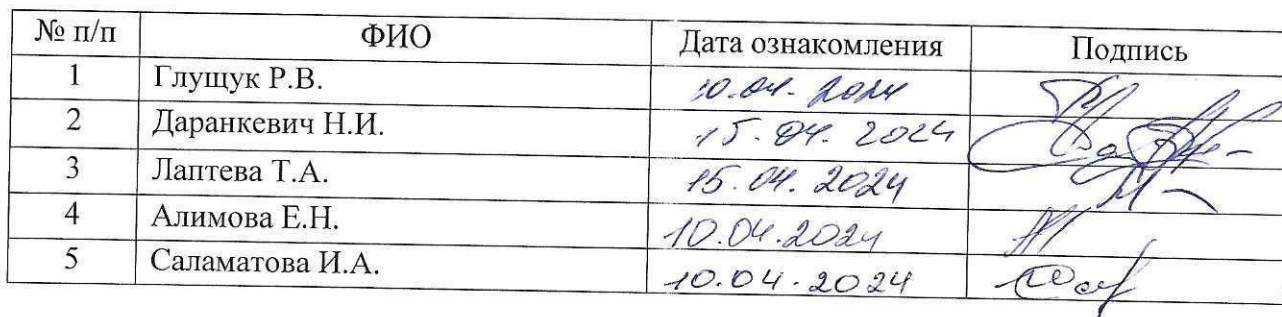 № п/п ФИО Дата ознакомления Подпись
1 Глущук Р.В. 10.04.2024
2 Даранкевич Н.И. 15.04.2024
3 Лаптева Т.А. 15.04.2024
4 Алимова Е.Н. 10.04.2024
5 Саламатова И.А. 10.04.2024